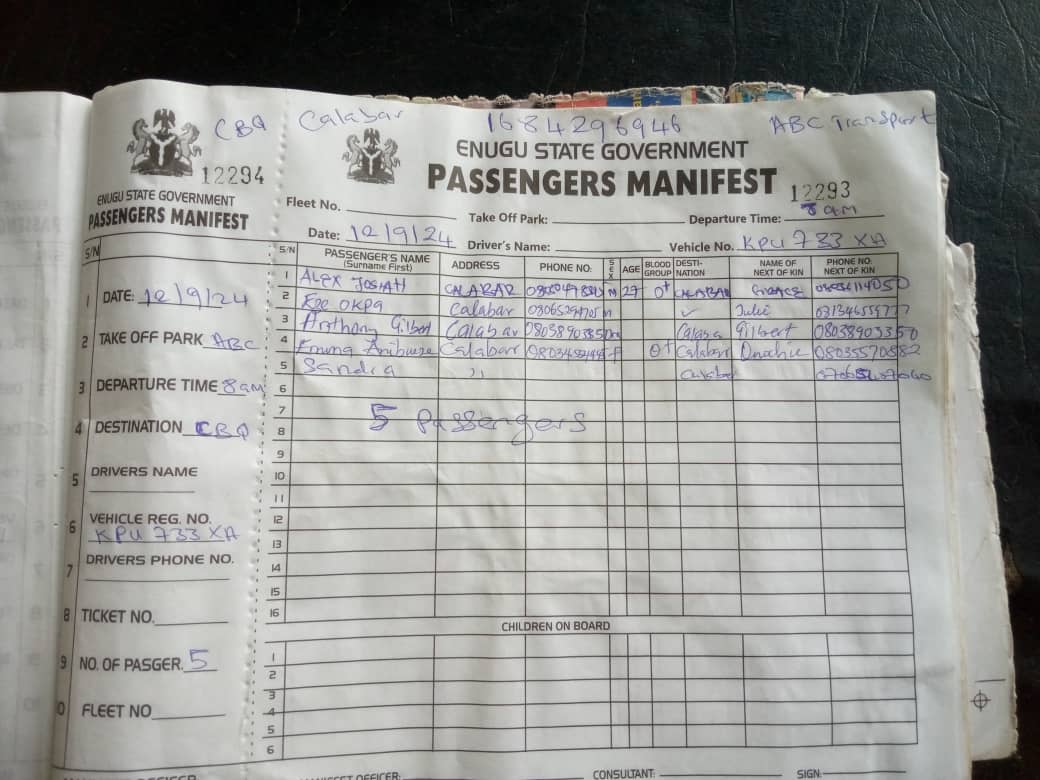 CBQ Calabar 1684296946 ABC Transport
12294
ENUGU STATE GOVERNMENT
PASSENGERS MANIFEST
S/N
1 DATE: 12/9/24
2 TAKE OFF PARK ABC
3 DEPARTURE TIME 8am
4 DESTINATION CBQ
5 DRIVERS NAME
6 VEHICLE REG. NO.
KPU 733 XA
7 DRIVERS PHONE NO.
8 TICKET NO.
9 NO. OF PASGER. 5
0 FLEET NO
ENUGU STATE GOVERNMENT
PASSENGERS MANIFEST 12293
Fleet No. Take Off Park: Departure Time: 8am
Date: 12/9/24 Driver's Name: Vehicle No. KPU 733 XA
S/N PASSENGER'S NAME (Surname First) ADDRESS PHONE NO: SEX AGE BLOOD GROUP DESTI-NATION NAME OF NEXT OF KIN PHONE NO: NEXT OF KIN
1 ALEX JOSIAH CALABAR M 27 O+ CALABAR GRACE
2 OKPA Calabar m ✓ Julie
3 Anthony Gilbert Calabar m Gilbert 08038903350
4 Calabar f O+ Calabar 08035570882
5 Sandra ,,
6
7 5 Passengers
8
9
10
11
12
13
14
15
16
CHILDREN ON BOARD
1
2
3
4
5
6
OFFICER: CONSULTANT: SIGN: